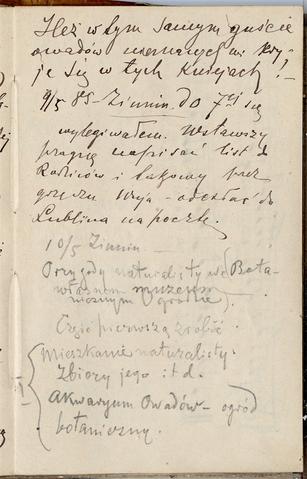 Ileż w tym samym guście
owadów nieznanych
je się w tych kniejach!
9/5 85 – Zimnn. do 7ej się
wylegiwałem. Wstawszy
pragnę napisać list do
Rodziców i
Wuja – odesłać do
Lublina na pocztę.
10/5 Zimnn –
Przygody naturalisty we (Bota-
własnem muzeum
nicznym Ogrodzie).
Część pierwszą zrobić
I Mieszkanie naturalisty.
Zbiory jego i t d.
Akwaryum Owadów – ogród
botaniczny.